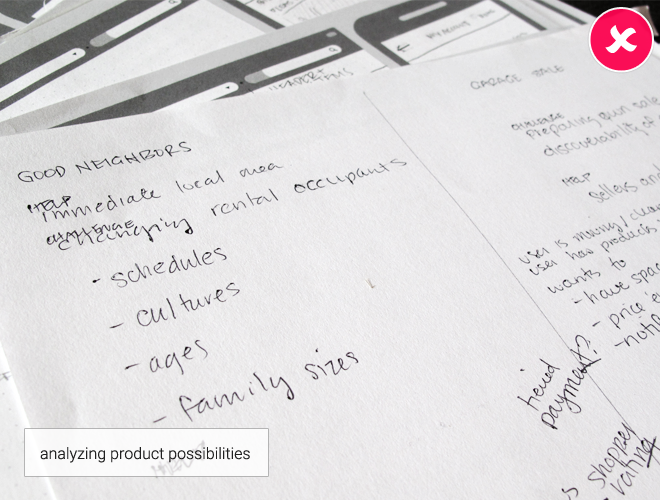 GOOD NEIGHBORS
HELP
immediate local area
CHALLENGE
changing rental occupants
- schedules
- cultures
- ages
- family sizes
GARAGE SALE
CHALLENGE
preparing own sale
discoverability of
HELP
sellers and
user is moving/
user how products
wants to
- have spac
- price
- notif
tiered
payment?
shopper
rating
MY ACCOUNT
analyzing product possibilities